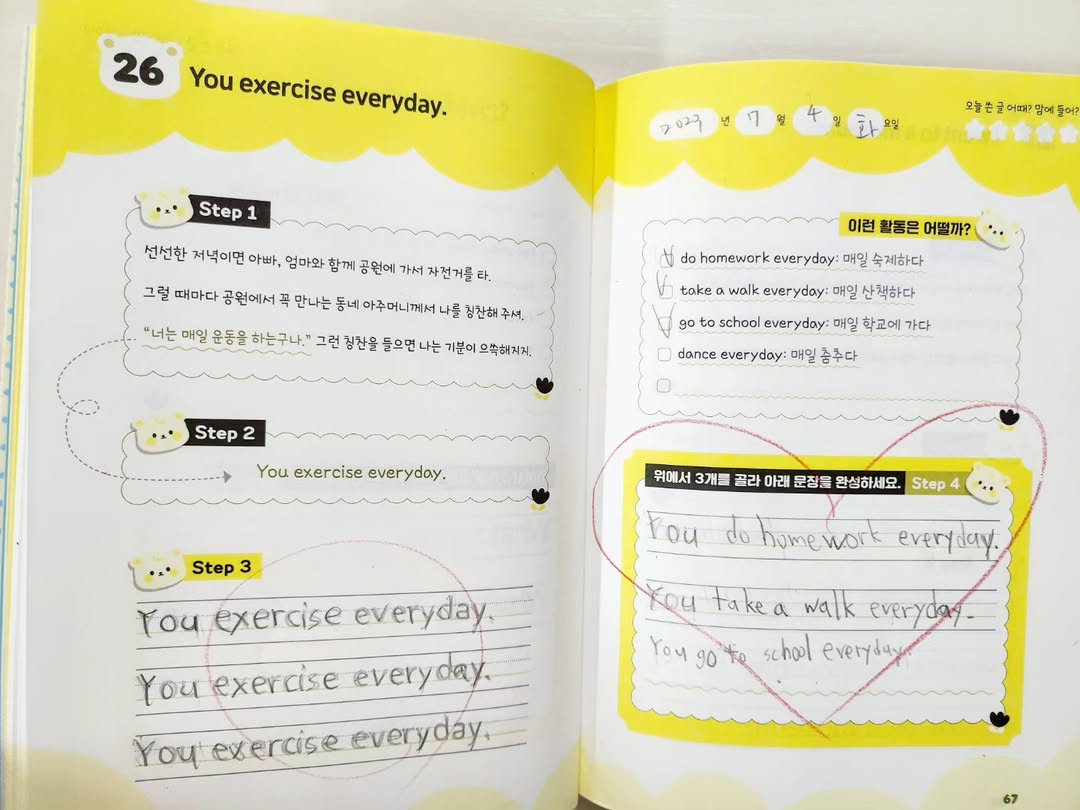 26 You exercise everyday.
Step 1
선선한 저녁이면 아빠, 엄마와 함께 공원에 가서 자전거를 타.
그럴 때마다 공원에서 꼭 만나는 동네 아주머니께서 나를 칭찬해 주셔.
“너는 매일 운동을 하는구나.” 그런 칭찬을 들으면 나는 기분이 으쓱해지지.
Step 2
You exercise everyday.
Step 3
You exercise everyday.
You exercise everyday.
You exercise everyday.
2023 년 7 월 4 일 화 요일
오늘 쓴 글 어때? 맘에 들어?
이런 활동은 어떨까?
do homework everyday: 매일 숙제하다
take a walk everyday: 매일 산책하다
go to school everyday: 매일 학교에 가다
dance everyday: 매일 춤추다
위에서 3개를 골라 아래 문장을 완성하세요. Step 4
You do homework everyday.
You take a walk everyday.
You go to school everyday.
67